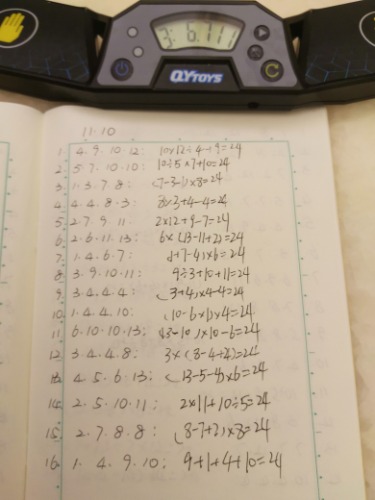 3: 6.711
QY TOYS
11.10
1. 4. 9. 10. 12: 10×12÷4-9=24
2. 5. 7. 10. 10: 10÷5×7+10=24
3. 1. 3. 7. 8: (7-3-1)×8=24
4. 4. 4. 8. 3: 8×3+4-4=24
5. 2. 7. 9. 11:
6. 2. 6. 11. 13: 6×(13-11+2)=24
7. 1. 4. 6. 7: (1+7-4)×6=24
8. 3. 9. 10. 11: 9÷3+10+11=24
9. 3. 4. 4. 4: (3+4)×4-4=24
10. 1. 4. 4. 10: (10-4×1)×4=24
11. 6. 10. 10. 13: (13-10)×10-6=24
12. 3. 4. 4. 8: 3×(8-4+4)=24
13. 4. 5. 6. 13: (13-5-4)×6=24
14. 2. 5. 10. 11: 2×11+10÷5=24
15. 2. 7. 8. 8: (8-7+2)×8=24
16. 1. 4. 9. 10: 9+1+4+10=24